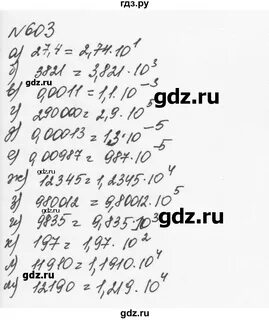 №603
а) 27,4 = 2,74·10¹
б) 3821 = 3,821·10³
в) 0,0011 = 1,1·10⁻³
г) 290000 = 2,9·10⁵
д) 0,00013 = 1,3·10⁻⁵
е) 0,00987 = 987·10⁻⁵
ж) 12345 = 1,2345·10⁴
з) 980012 = 9,80012·10⁵
и) 9835 = 9,835·10³
к) 197 = 1,97·10²
л) 11980 = 1,1910·10⁴
м) 12190 = 1,219·10⁴
gdz.ru
gdz.ru
gdz.ru
gdz.ru
gdz.ru
gdz.ru